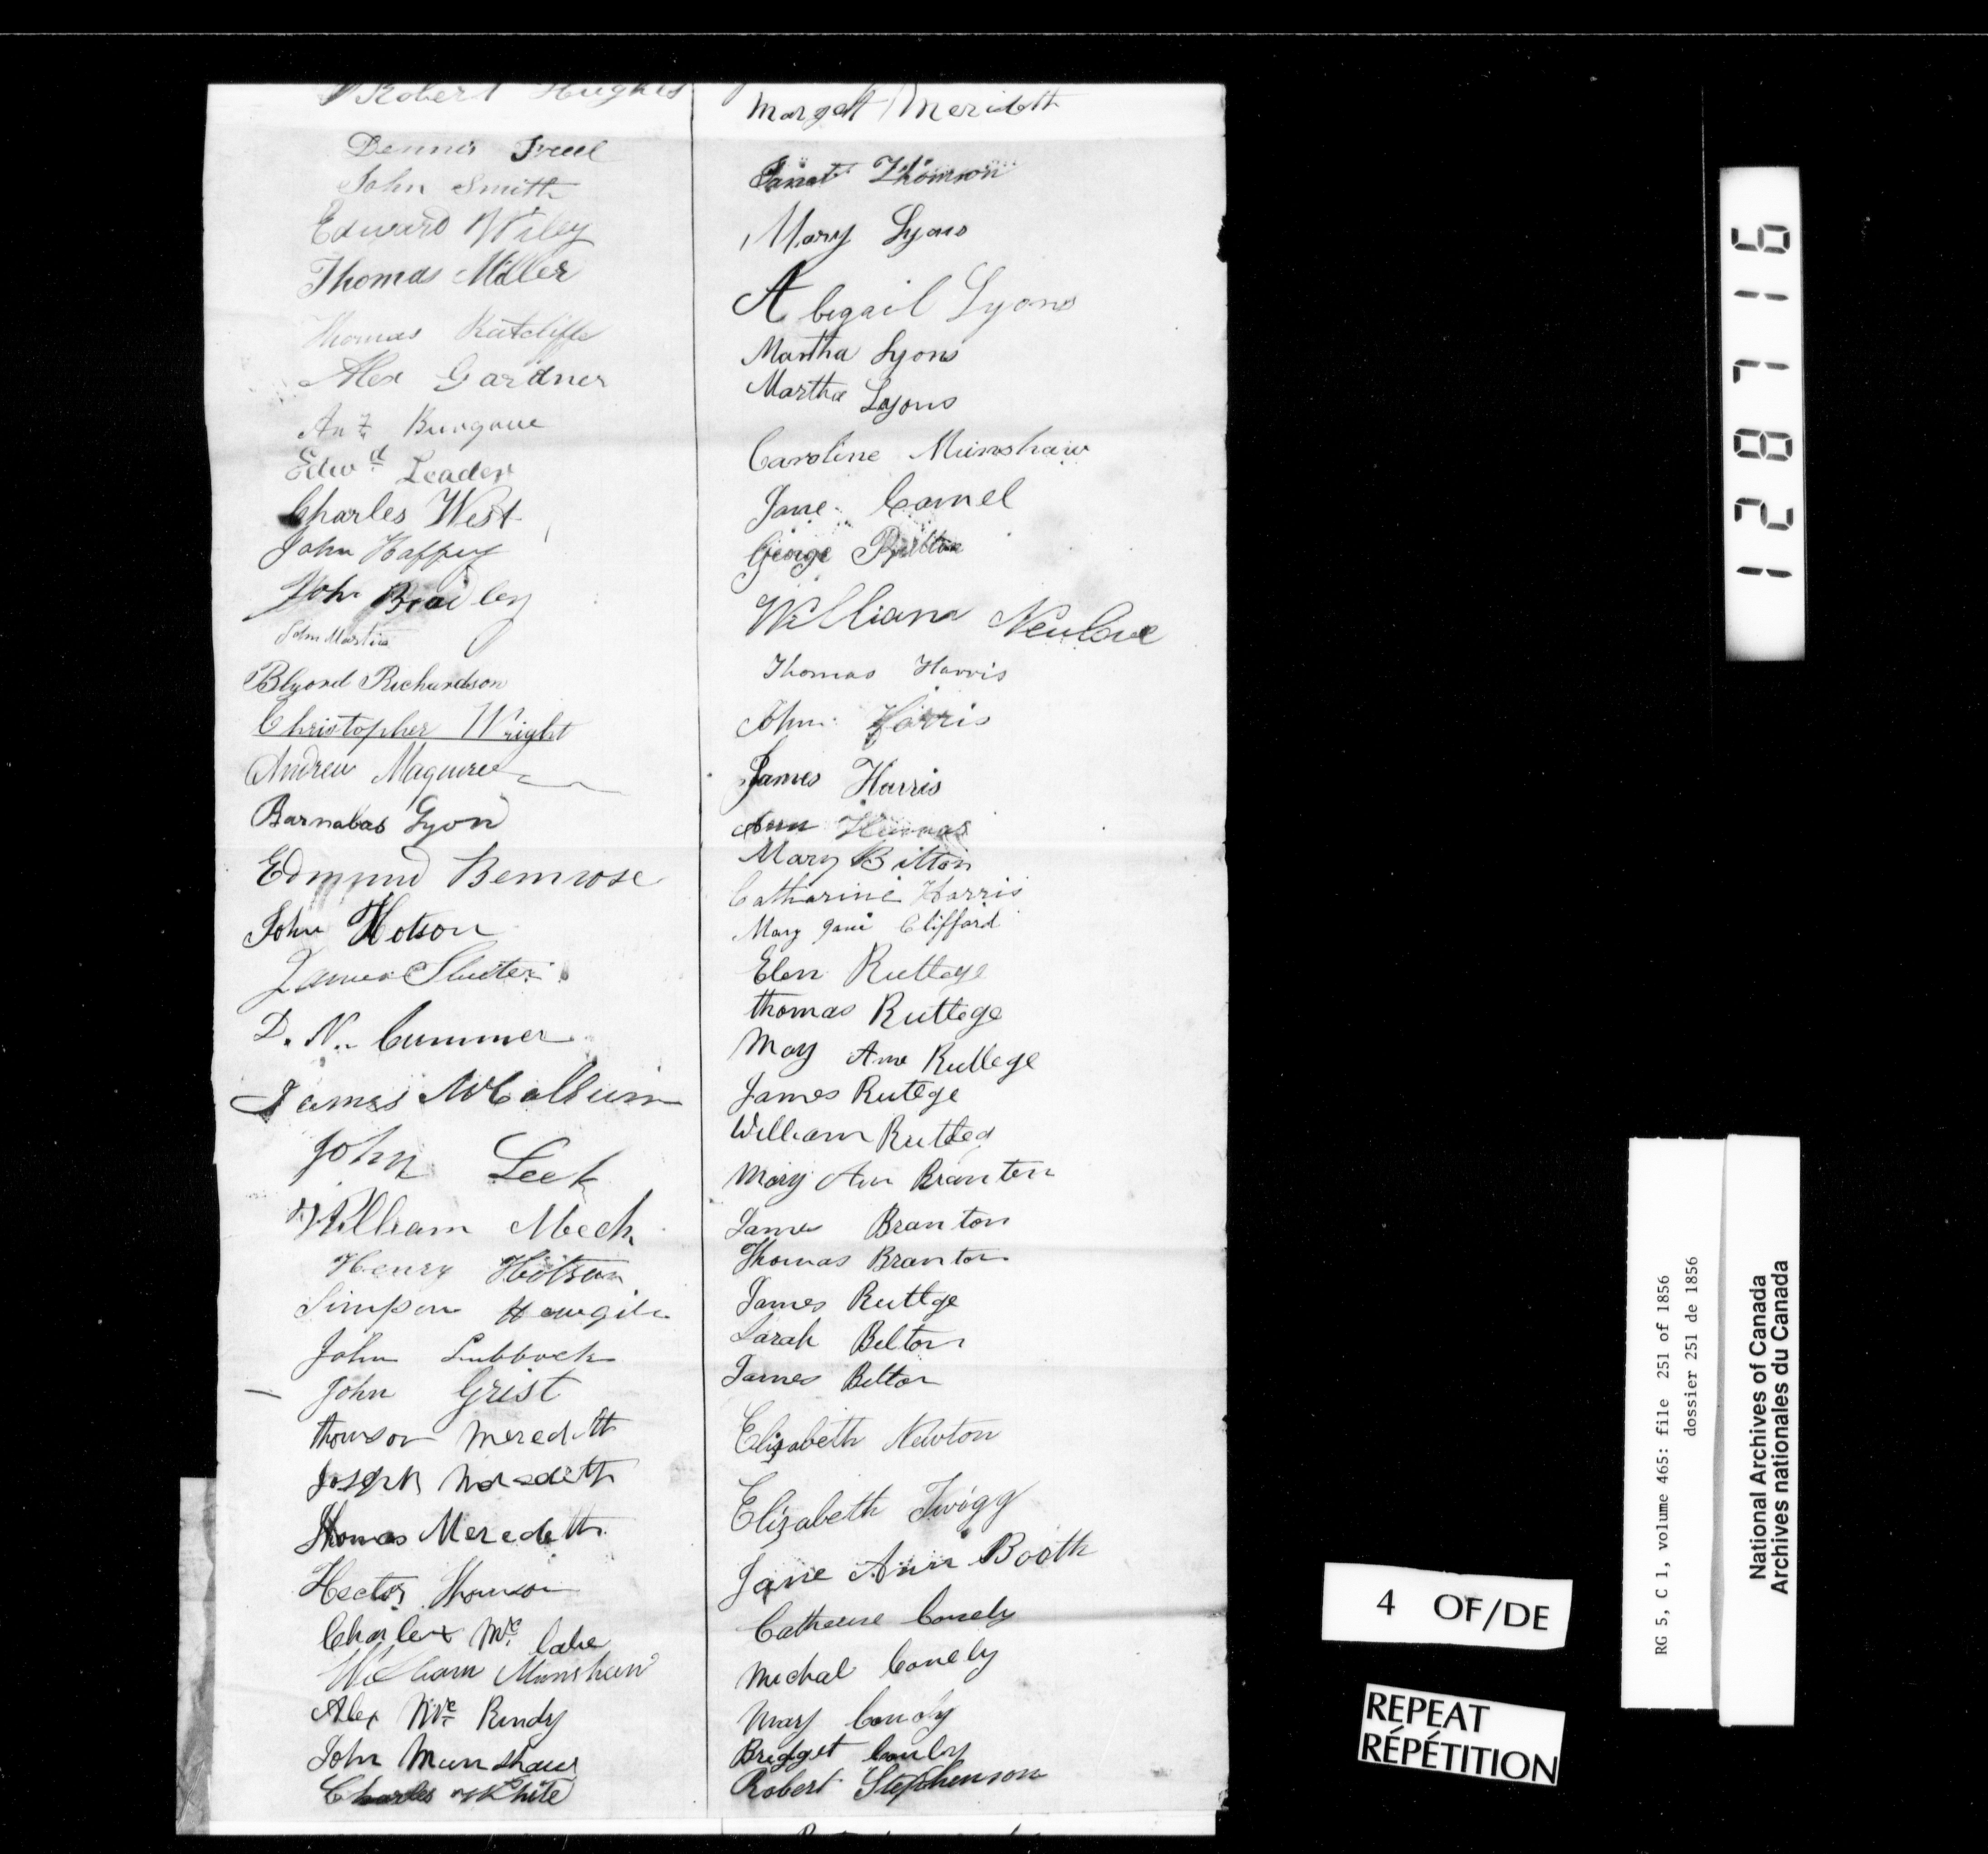 Robert Hughes
Dennis
John Smith
Edward Wiley
Thomas Miller
Thomas Ratcliffe
Alex Gardner
Edwd Leader
Charles West
John Happey
John Bradley
John Martin
Blyord Richardson
Christopher Wright
Andrew Maguire
Barnabas Lyon
Edmund Bemrose
John Hotson
James
D. N. Cummer
James McCallum
John Leek
William Meek
Henry Hotson
Simpson
John Lubbock
John Grist
thomson Meredith
Joseph Meredith
Thomas Meredeth
Hector Thomson
Mc Cabe
William Munshaw
Alex Mc Rindy
John Munshaw
Charles White
Margett Merideth
Janat Thomson
Mary Lyons
Abigail Lyons
Martha Lyons
Martha Lyons
Caroline Munshaw
Jane Camel
George
William Newlove
Thomas Harris
John Harris
James Harris
Ann
Mary Bilton
Catharine Harris
Mary Jane Clifford
Elen Ruttege
thomas Ruttege
May Ann Ruttege
James Rutege
William Rutted
Mary Ann Branten
James Branton
Thomas Branton
James Ruttge
Sarah Belton
James Belton
Elizabeth Newton
Elizabeth Twigg
Jane Ann Booth
Catherine Conely
Michal Conely
Mary Conoly
Bredget Conley
Robert Stephenson
128716
RG 5, C 1, volume 465: file 251 of 1856
dossier 251 de 1856
National Archives of Canada
Archives nationales du Canada
4 OF/DE
REPEAT
RÉPÉTITION